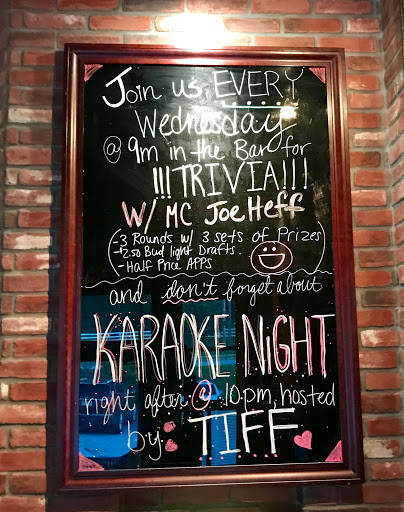 Join us, EVERY
Wednesday
@ 9m in the Bar for
!!!TRIVIA!!!
W/ MC Joe Heff
-3 Rounds w/ 3 sets of Prizes
-$2.50 Bud light Drafts.
-Half Price APPS
and don't forget about
KARAOKE NiGHT
right after @ 10pm, hosted
by: TIFF